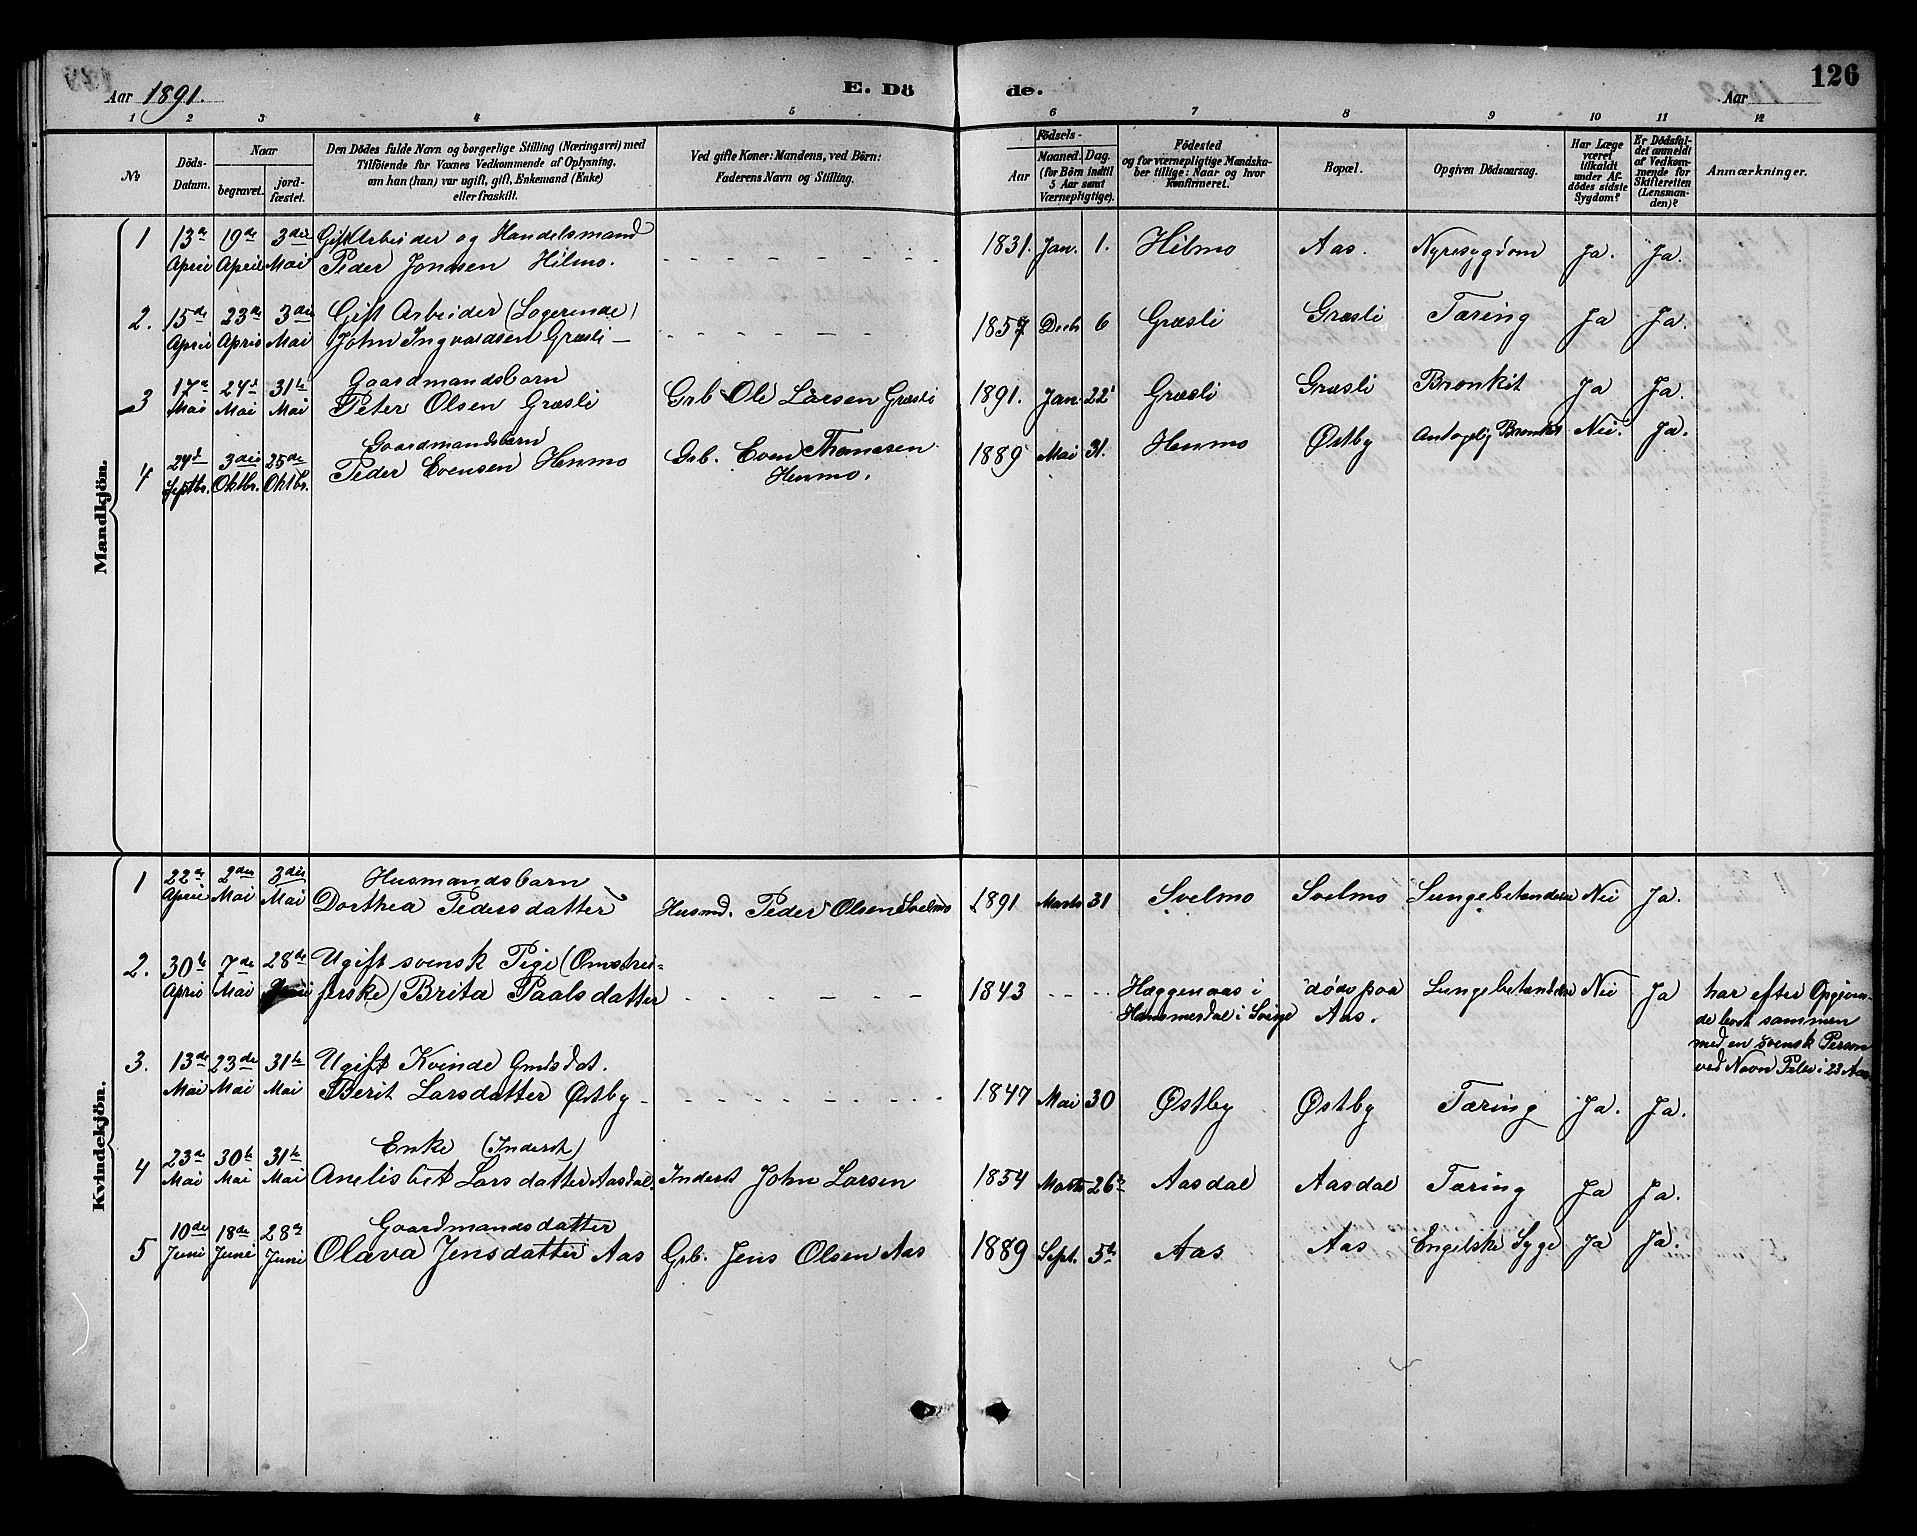 126
Aar 1891.
E. Dö de.
Aar
1 2 3 4 5 6 7 8 9 10 11 12
No
Döds-Datum.
Naar
begravet.
jord-fæstet.
Den Dödes fulde Navn og borgerlige Stilling (Næringsvei) med
Tilföiende for Voxnes Vedkommende af Oplysning,
om han (hun) var ugift, gift, Enkemand (Enke)
eller fraskilt.
Ved gifte Koner: Mandens, ved Börn:
Faderens Navn og Stilling.
Födsels-
Aar
Maaned. Dag.
(for Börn indtil
5 Aar samt
Værnepligtige).
Födested
og for værnepligtige Mandska-
ber tillige: Naar og hvor
konfirmeret.
Bopæl.
Opgiven Dödsaarsag.
Har Læge
været
tilkaldt
under Af-
dödes sidste
Sygdom?
Er Dödsfal-
det anmeldt
af Vedkom-
mende for
Skifteretten
(Lensman-
den)?
Anmærkninger.
Mandkjön.
1 13de April 19de April 3die Mai Gift Arbeider og Handelsmand
Peder Jonasen Hilmo. 1831. Jan. 1. Hilmo Aas. Nyresygdom Ja. Ja.
2. 15de April 23de April 3die Mai Gift Arbeider (Logerende)
John Ingvardsen Græsli 1857 Decb 6 Græsli Græsli Tæring Ja Ja.
3 17de Mai 24de Mai 31te Mai Gaardmandsbarn
Peter Olsen Græsli Grb Ole Larsen Græsli 1891. Jan. 22 Græsli Græsli Bronkit Ja Ja.
4 24de Septbr. 3die Oktbr. 25de Oktbr. Gaardmandsbarn
Peder Evensen Henmo Grb. Even Thomasen
Henmo. 1889 Mai 31. Henmo Østby Antagelig Bronkit Nei. Ja.
Kvindekjön.
1 22de April 2den Mai 3die Mai Husmandsbarn
Dorthea Pedersdatter Husmd. Peder Olsen Svelmo 1891 Marts 31 Svelmo Svelmo Lungebetændelse Nei Ja.
2. 30te April 7de Mai 28de Juni Ugift svensk Pige (Omstrei-
ferske) Brita Paalsdatter 1843 Hæggenaas i
Hammerdal i Sverige døde paa
Aas. Lungebetændelse Nei Ja har efter Opgiven-
de levet sammen
med en svensk Person
ved Navn i 23 Aar
3. 13de Mai 23de Mai 31te Mai Ugift Kvinde Gmdsdat.
Berit Larsdatter Østby 1847 Mai 30 Østby Østby Tæring Ja. Ja.
4 23de Mai 30te Mai 31te Mai Enke (Inderst)
Anelisbet Larsdatter Aasdal. Inderst John Larsen 1854 Marts 26de Aasdal Aasdal Tæring Ja Ja.
5 10de Juni 18de Juni 28de Juni Gaardmandsdatter
Olava Jensdatter Aas Grb. Jens Olsen Aas 1889 Sept. 5te Aas Aas Engelske Syge Ja Ja.